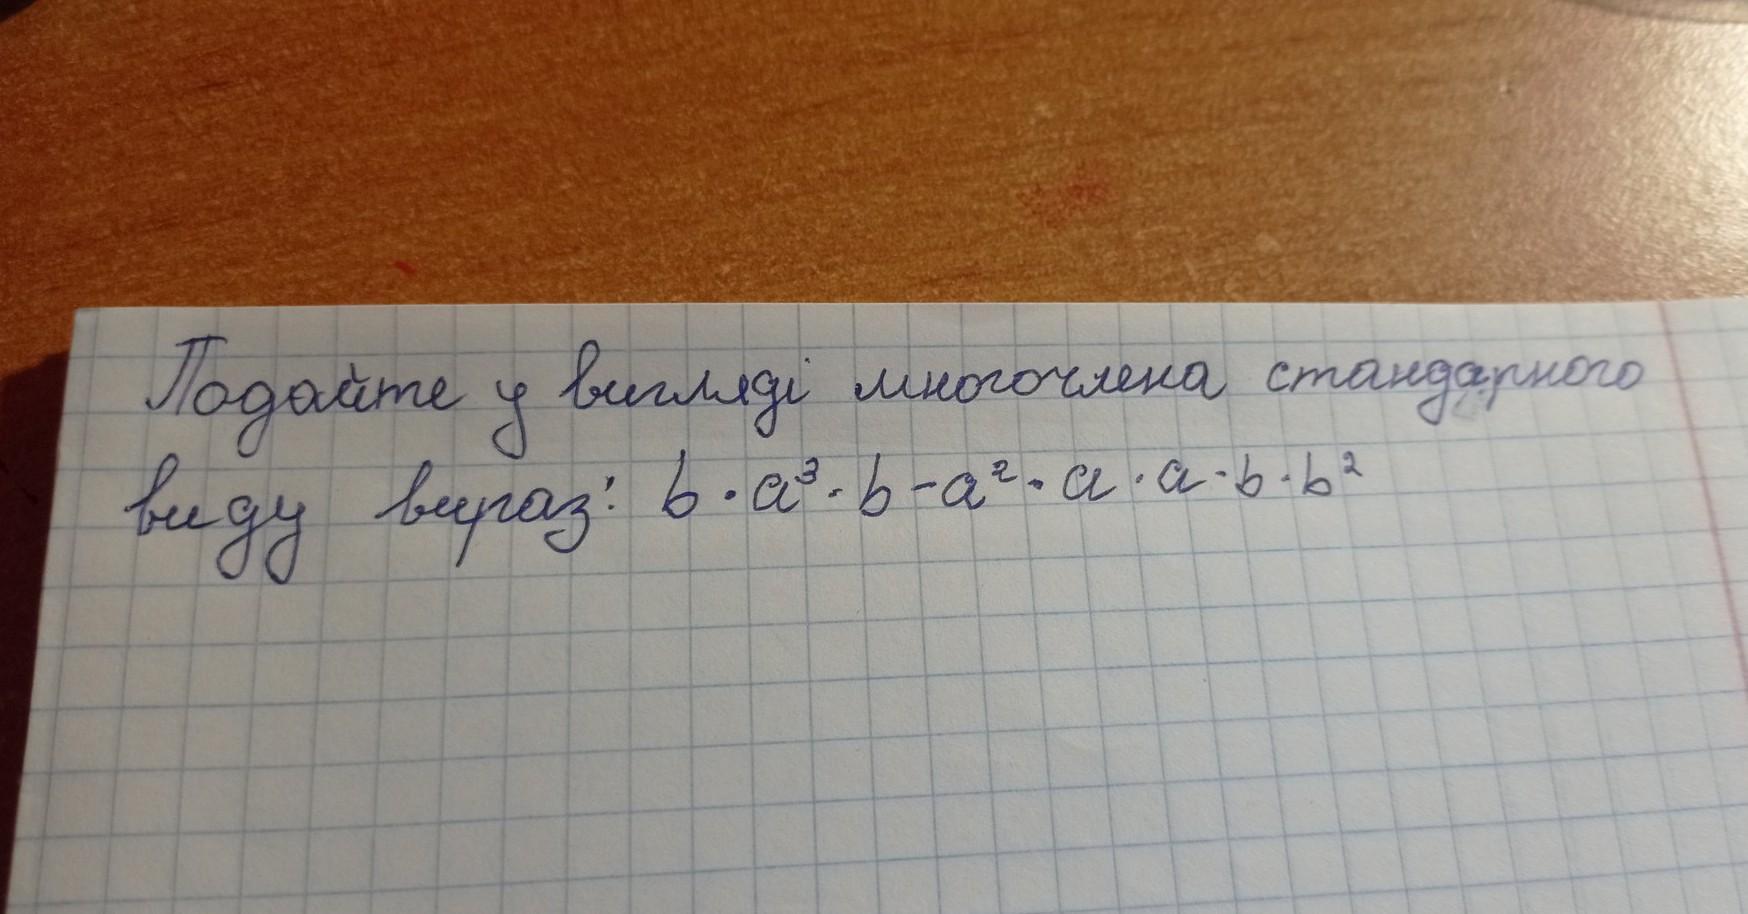 Подайте у вигляді многочлена стандарного
виду вираз: b · a³ · b - a² · a · a · b · b²